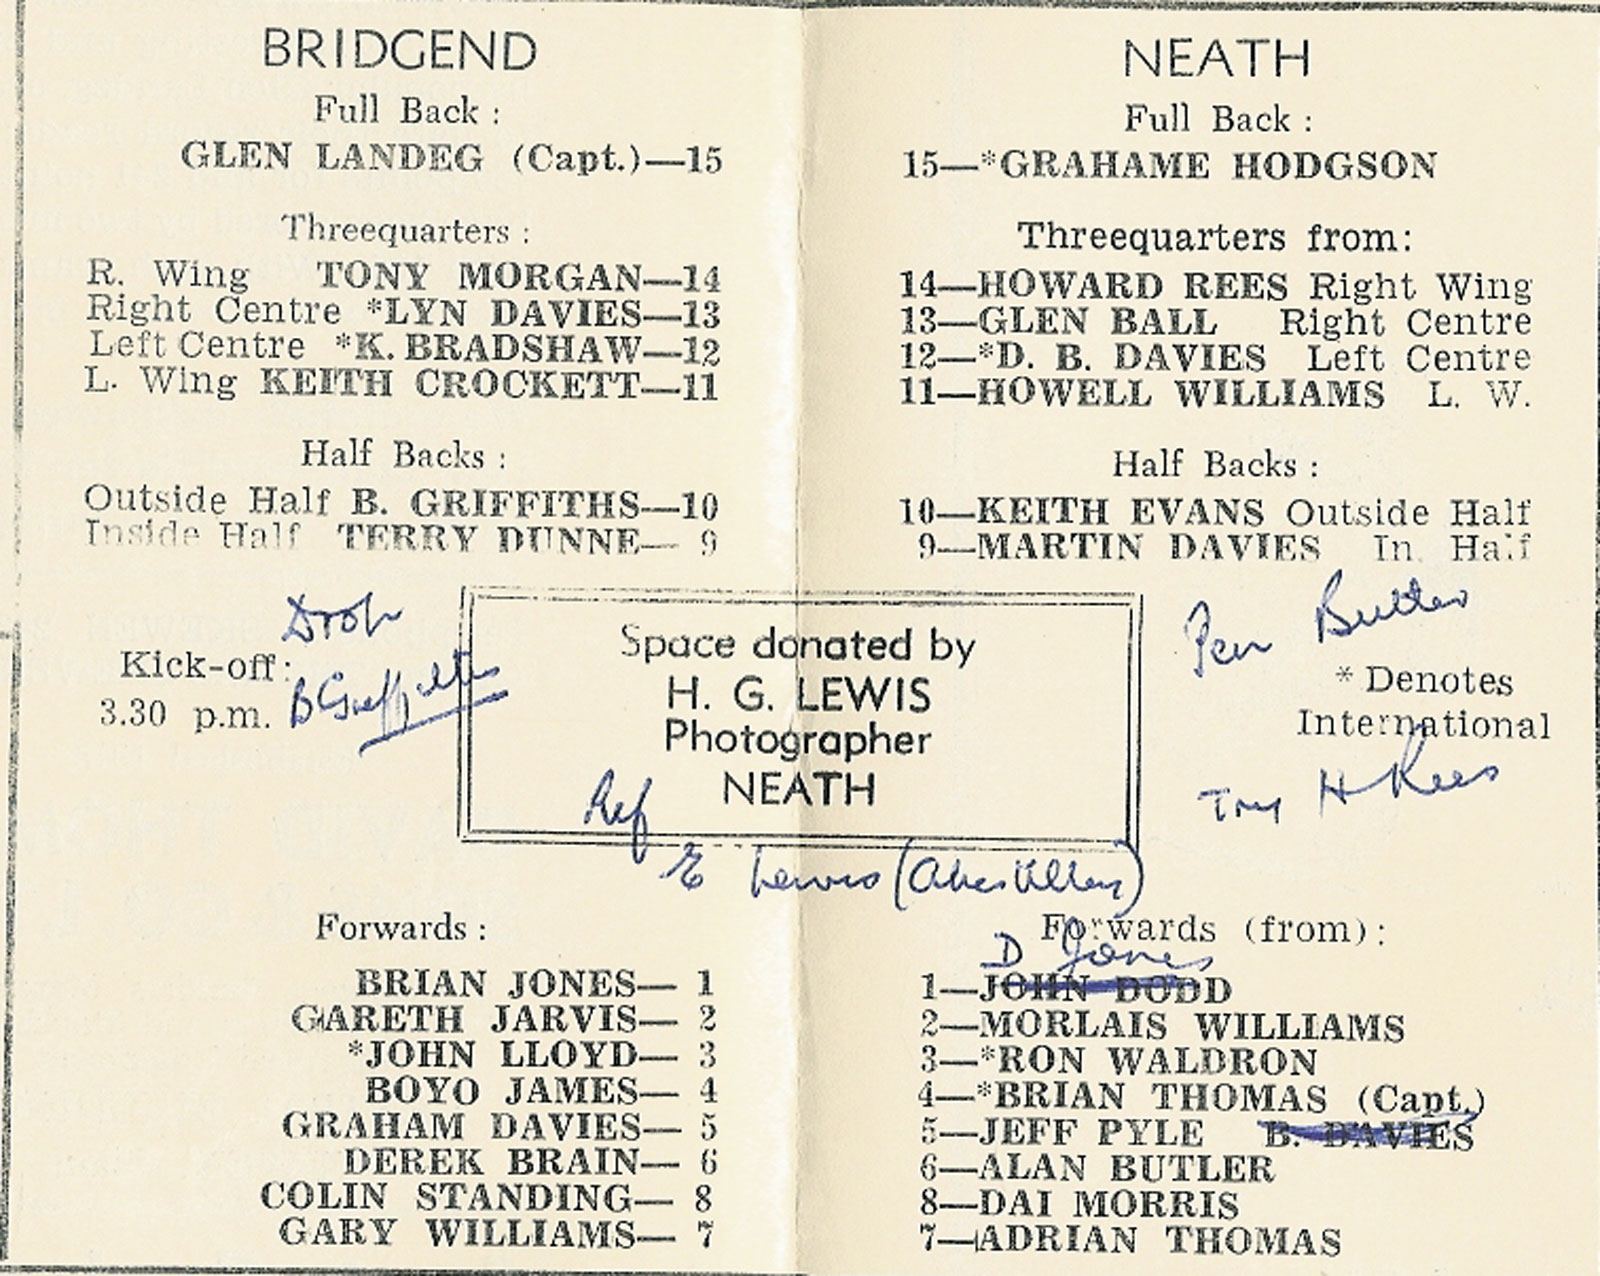 BRIDGEND
Full Back :
GLEN LANDEG (Capt.)—15
Threequarters :
R. Wing TONY MORGAN—14
Right Centre *LYN DAVIES—13
Left Centre *K. BRADSHAW—12
L. Wing KEITH CROCKETT—11
Half Backs :
Outside Half B. GRIFFITHS—10
Inside Half TERRY DUNNE— 9
Drop
Kick-off:
B Griffiths
3.30 p.m.
NEATH
Full Back :
15—*GRAHAME HODGSON
Threequarters from:
14—HOWARD REES Right Wing
13—GLEN BALL Right Centre
12—*D. B. DAVIES Left Centre
11—HOWELL WILLIAMS L. W.
Half Backs :
10—KEITH EVANS Outside Half
9—MARTIN DAVIES In. Half
Pen Butler
* Denotes
International
Try H Rees
Space donated by
H. G. LEWIS
Photographer
NEATH
Ref
E Lewis (Abertillery)
Forwards :
BRIAN JONES— 1
GARETH JARVIS— 2
*JOHN LLOYD— 3
BOYO JAMES— 4
GRAHAM DAVIES— 5
DEREK BRAIN— 6
COLIN STANDING— 8
GARY WILLIAMS— 7
Forwards (from) :
D Jones
1—JOHN DODD
2—MORLAIS WILLIAMS
3—*RON WALDRON
4—*BRIAN THOMAS (Capt.)
5—JEFF PYLE B. DAVIES
6—ALAN BUTLER
8—DAI MORRIS
7—ADRIAN THOMAS